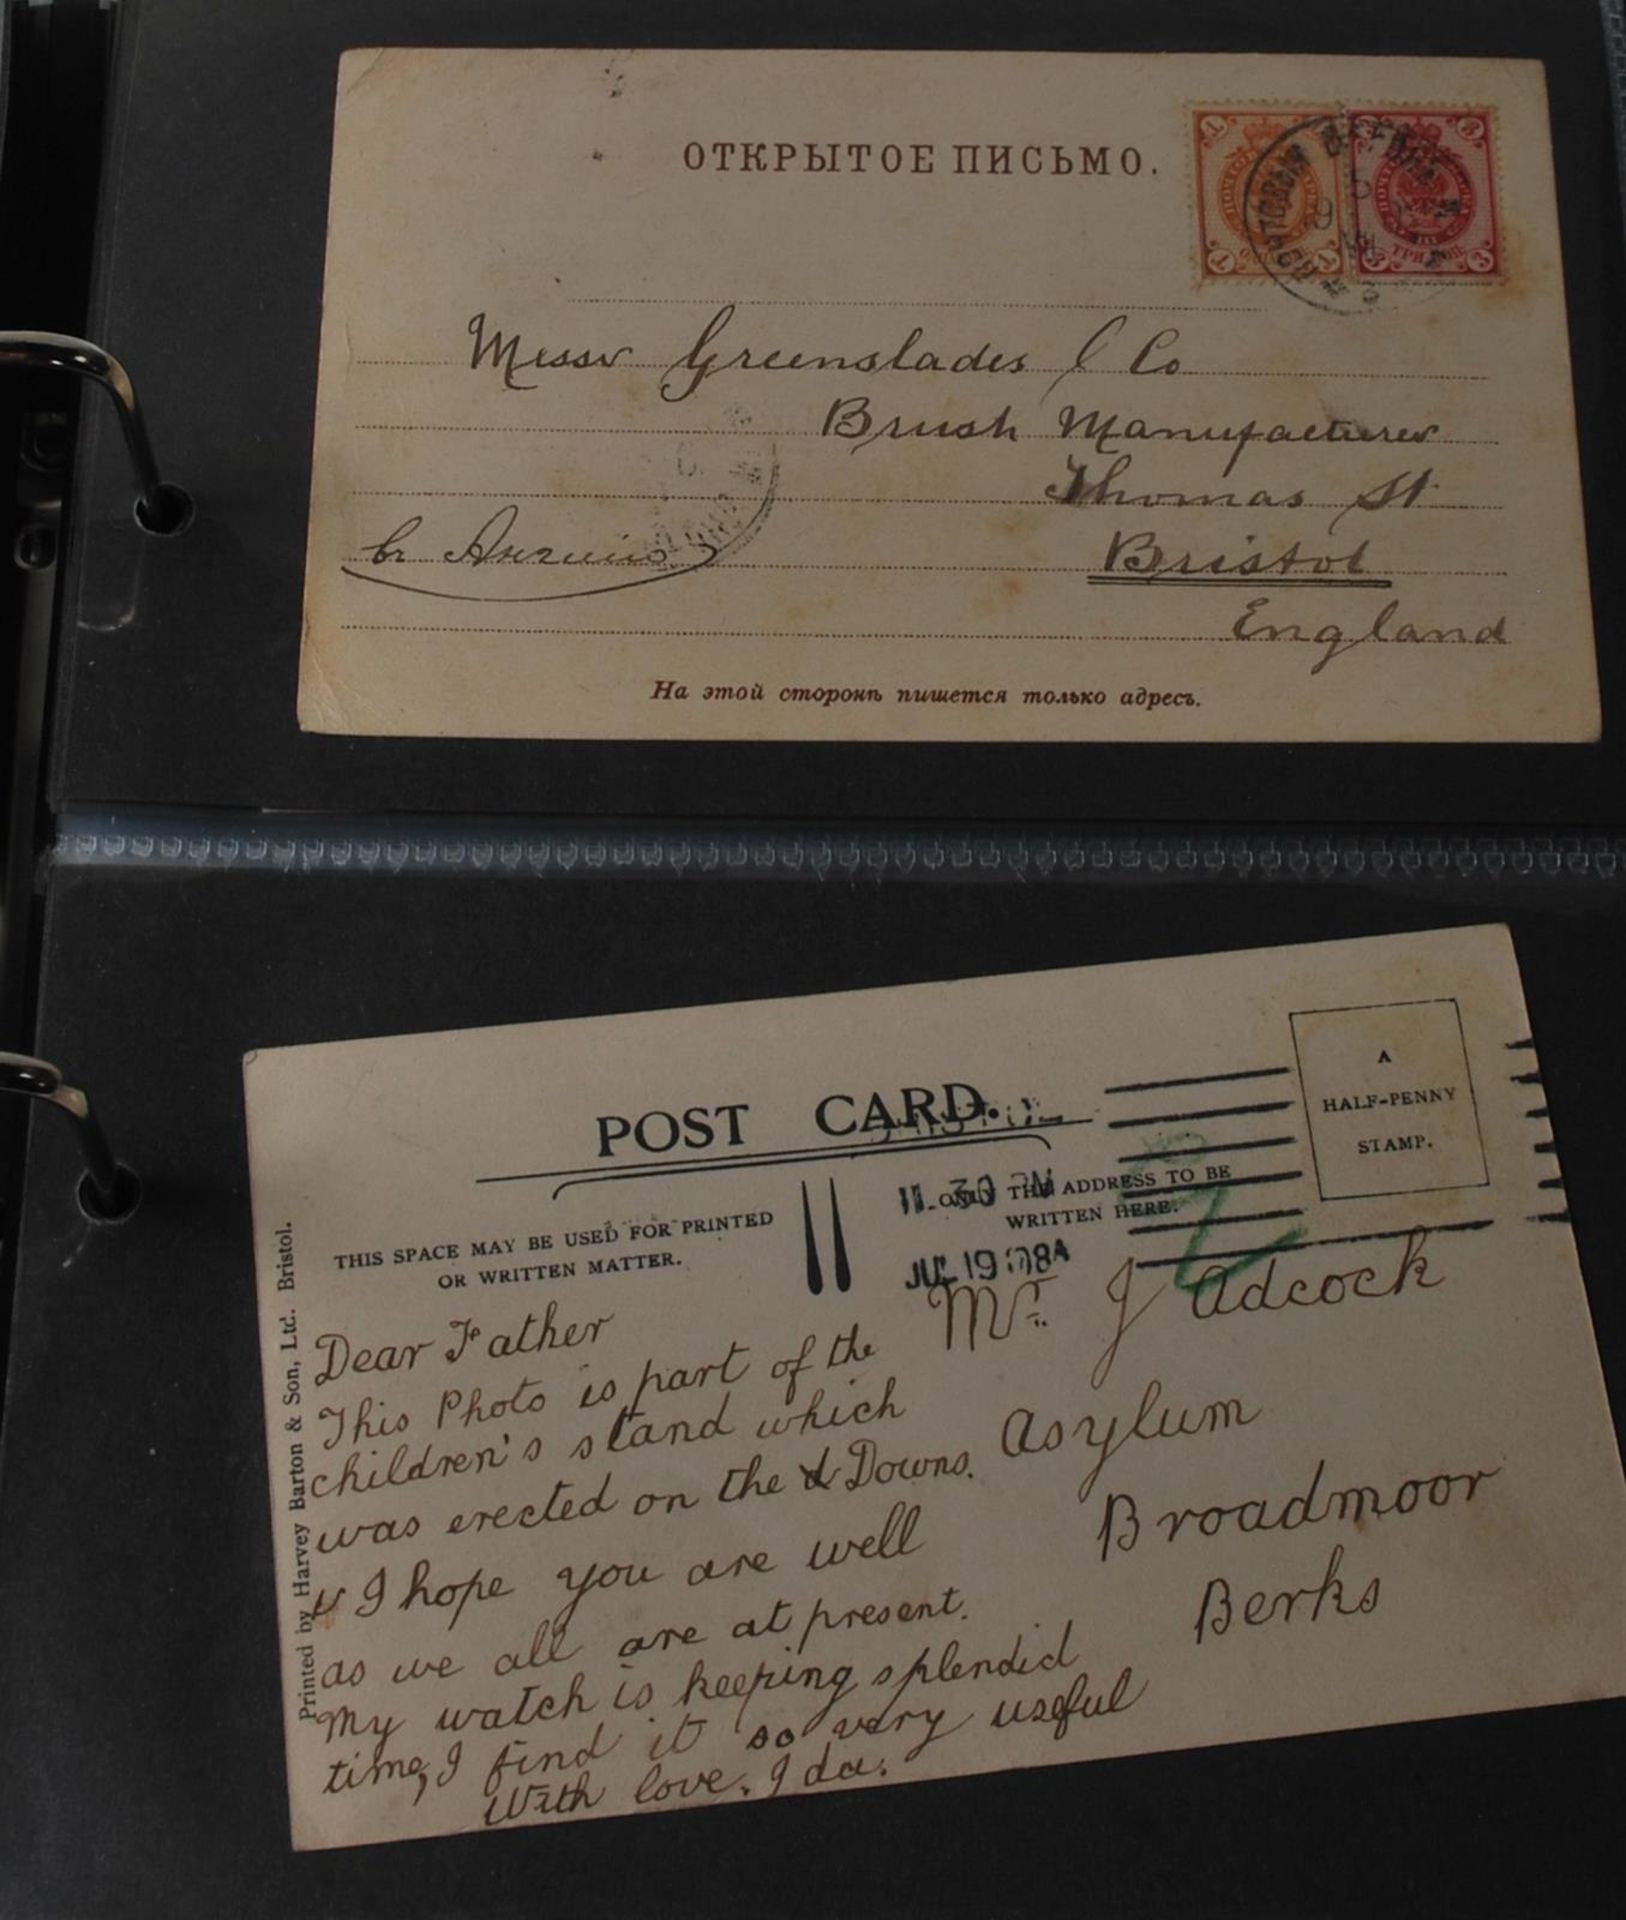 ОТКРЫТОЕ ПИСЬМО.
1 3
1 1 3 3
ПОЧТОВЫЙ ВАГОНЪ
Messrs Greenslades & Co
Brush Manufacturers
Thomas St
Bristol
England
въ Англию
На этой сторонѣ пишется только адресъ.
POST CARD.
A
HALF-PENNY
STAMP.
BRISTOL
11.30 PM
JUL 19
THIS SPACE MAY BE USED FOR PRINTED
OR WRITTEN MATTER.
ONLY THE ADDRESS TO BE
WRITTEN HERE.
Printed by Harvey Barton & Son, Ltd. Bristol.
Dear Father
This Photo is part of the
children's stand which
was erected on the Downs.
I hope you are well
as we all are at present.
My watch is keeping splendid
time, I find it so very useful
With love. Ida.
Mr. J Adcock
Asylum
Broadmoor
Berks